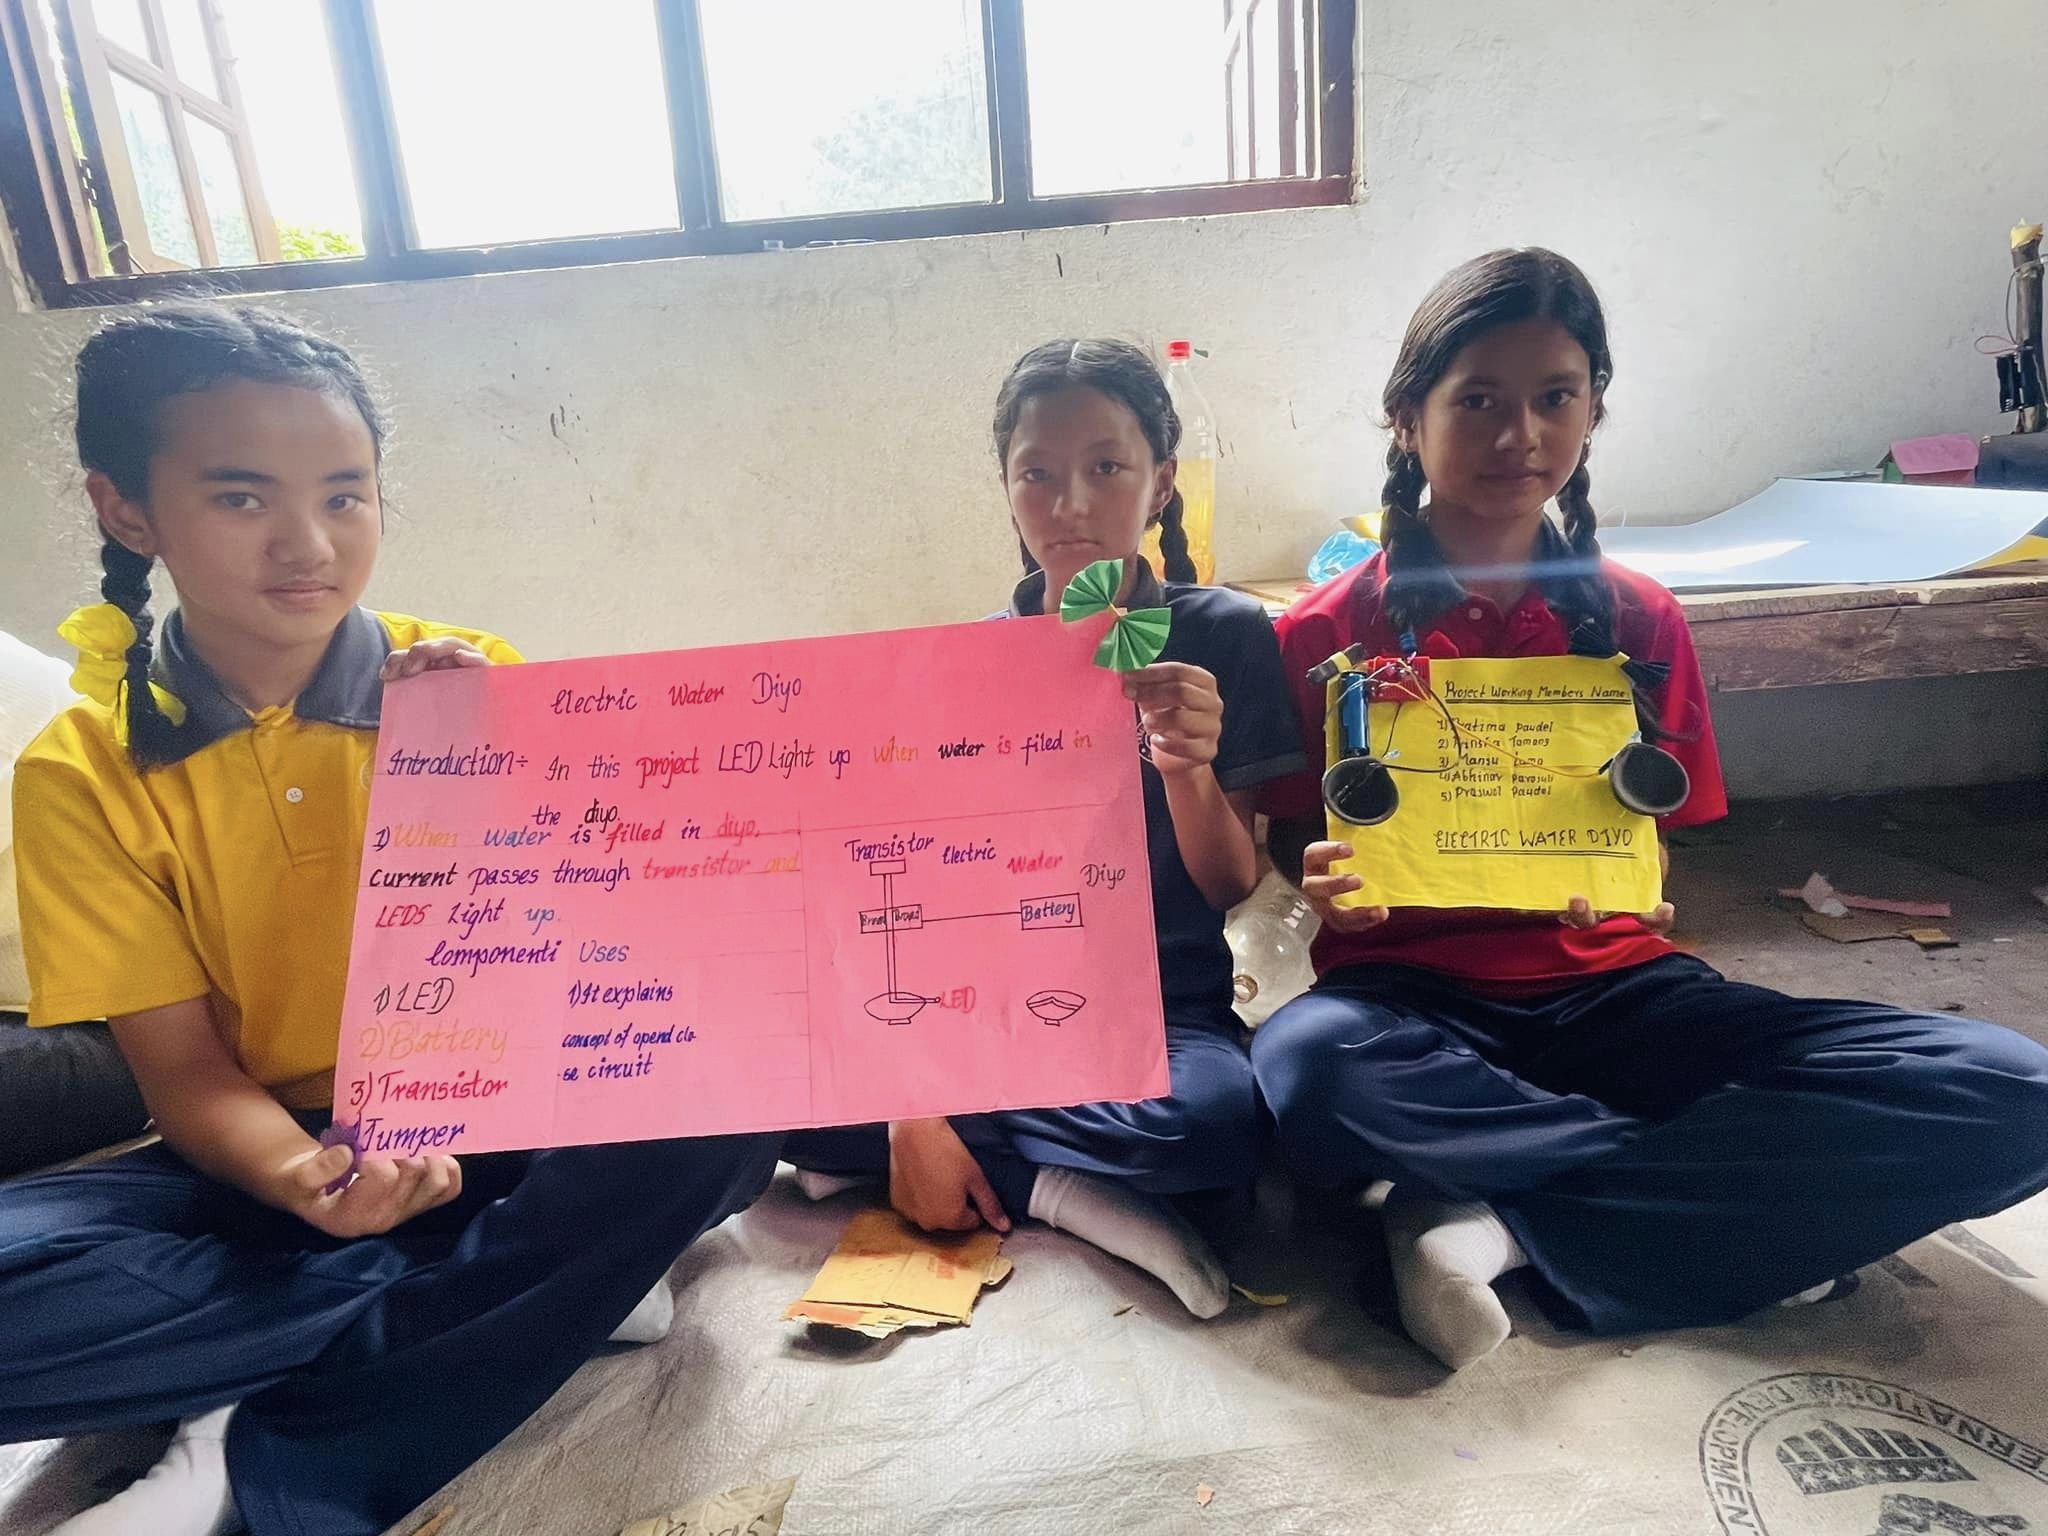 Electric Water Diyo
Introduction÷ In this project LED Light up when water is filed in
the diyo.
1) When water is filled in diyo,
current passes through transistor and
LEDS Light up.
Componenti Uses
1) LED
2) Battery
3) Transistor
Jumper
1) It explains
concept of opend clo
se circuit
Transistor
Electric Water Diyo
Battery
LED
Project Working Members Name:
1) Pratima paudel
2) Tamang
3) Manju Lama
4) Abhinav parajuli
5) Praswol paudel
ELECTRIC WATER DIYO
ERNATIONAL DEVELOPMENT